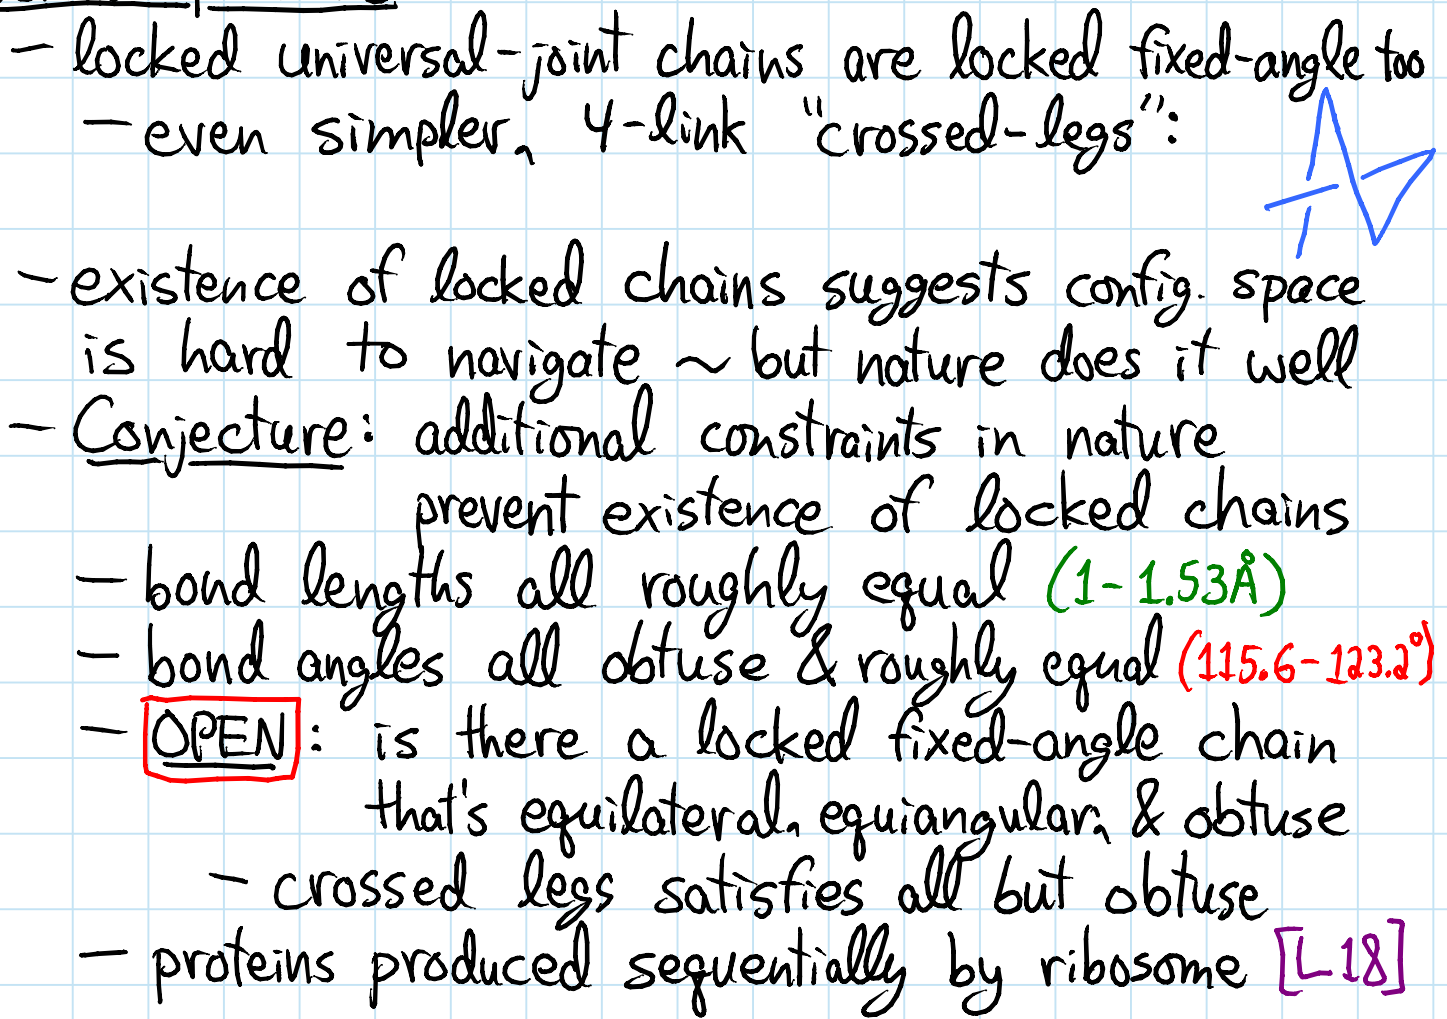 — locked universal-joint chains are locked fixed-angle too
— even simpler, 4-link "crossed-legs":
— existence of locked chains suggests config. space
is hard to navigate ~ but nature does it well
— Conjecture: additional constraints in nature
prevent existence of locked chains
— bond lengths all roughly equal (1-1.53Å)
— bond angles all obtuse & roughly equal (115.6-123.2°)
— OPEN: is there a locked fixed-angle chain
that's equilateral, equiangular, & obtuse
— crossed legs satisfies all but obtuse
— proteins produced sequentially by ribosome [L18]